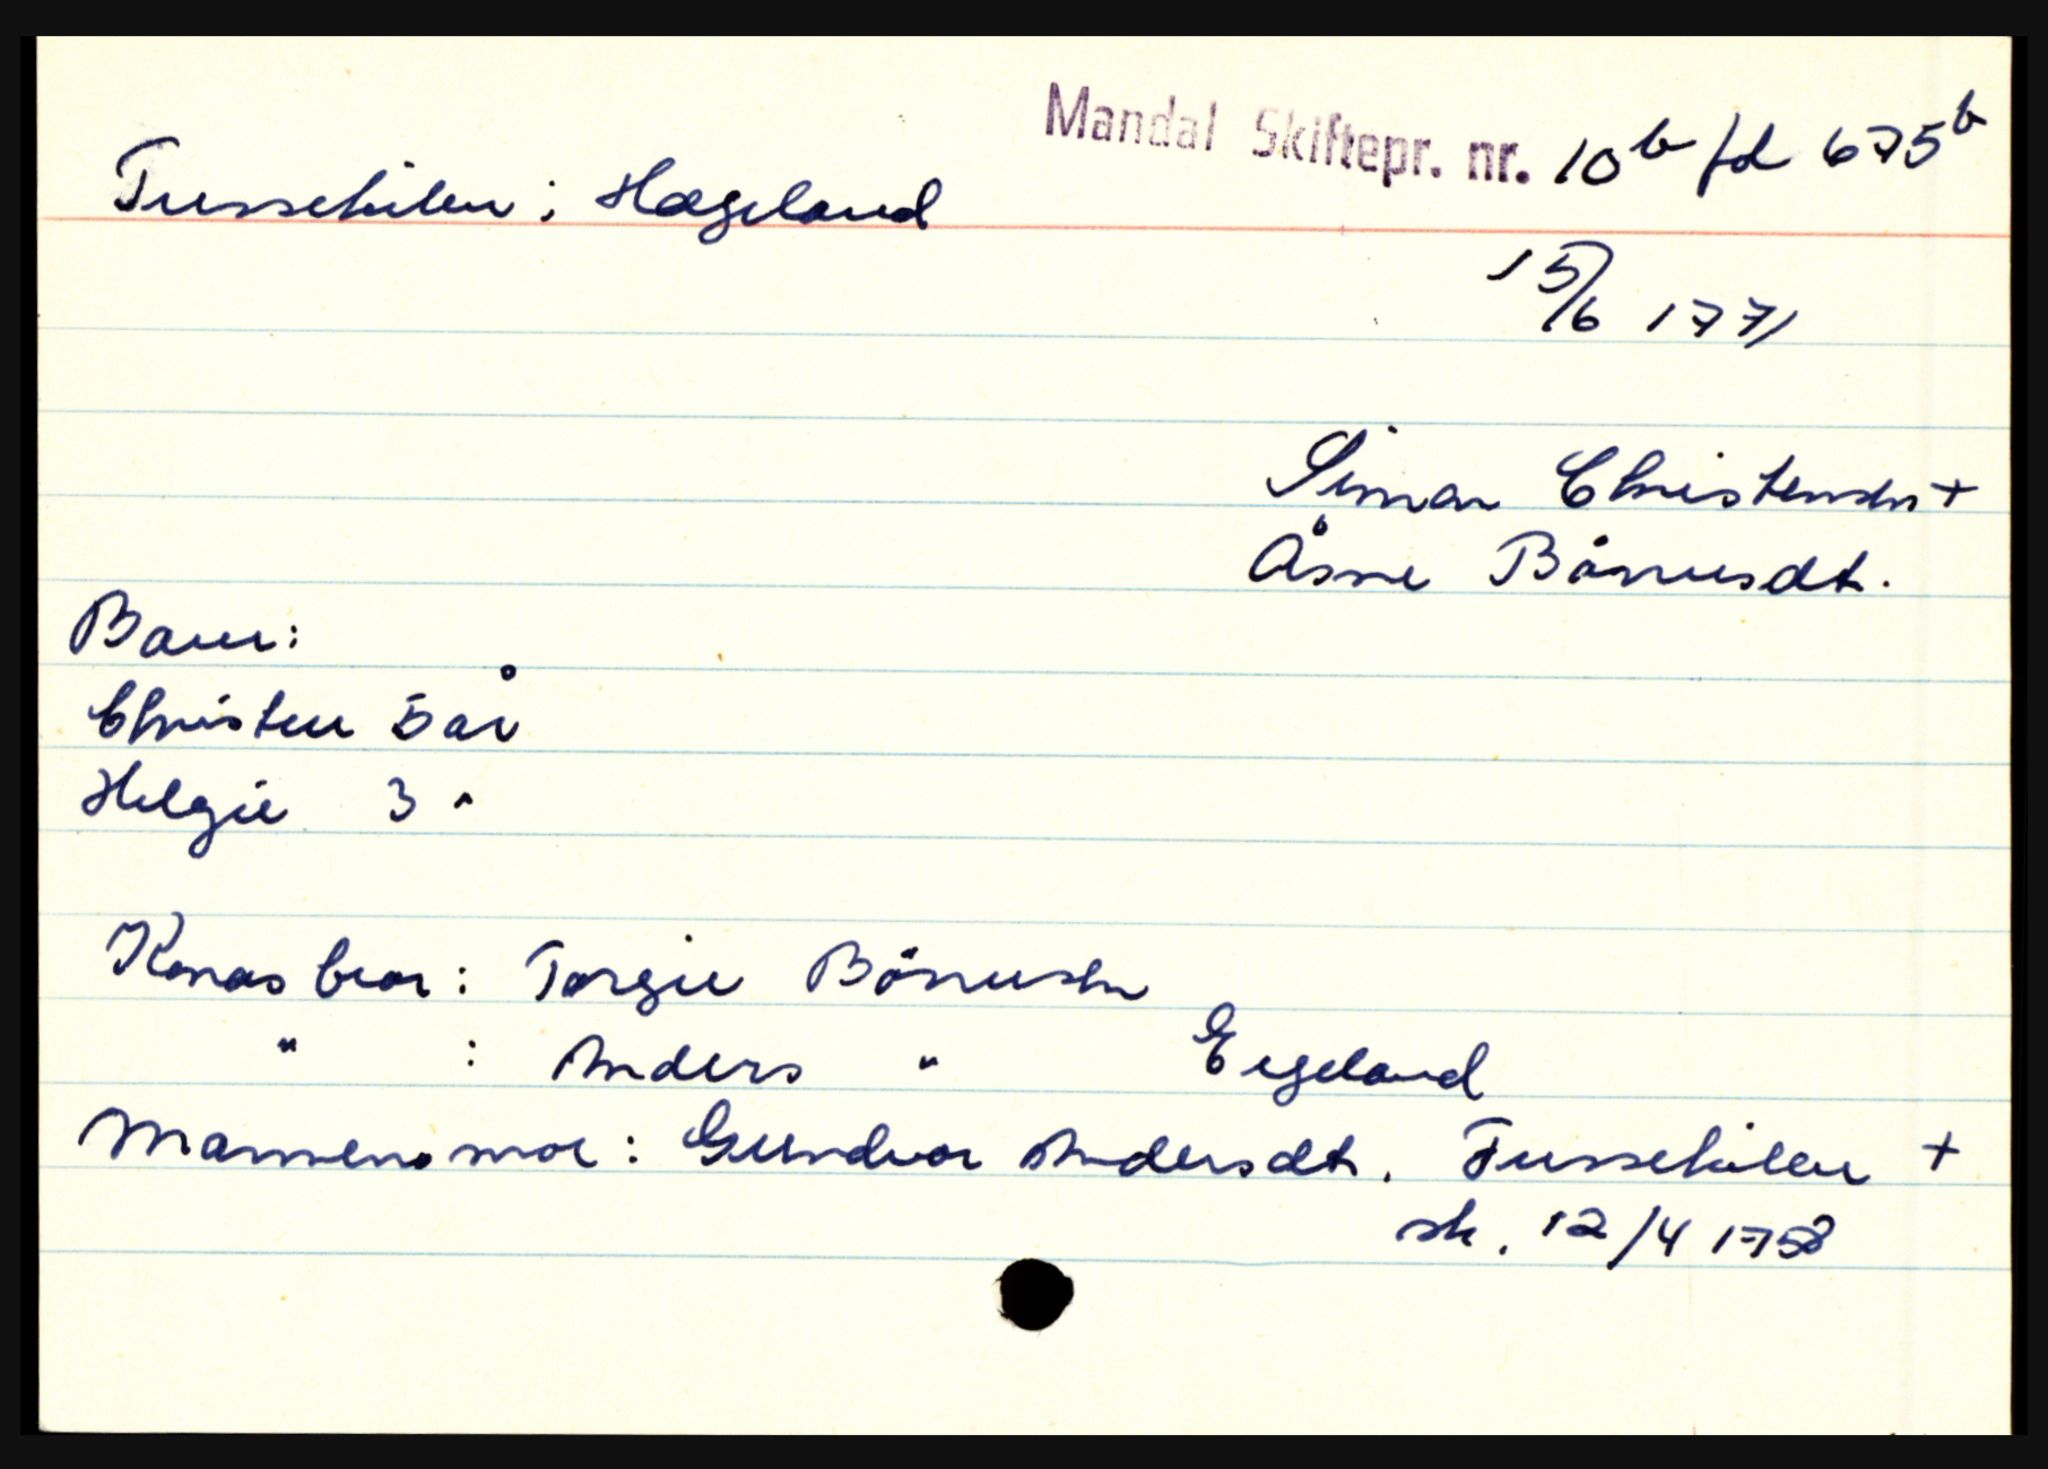 Mandal Skiftepr. nr. 10b fol 675b
Tussekilen i Hægeland
15/6 1771
Simon Christensn +
Åsne Bånnesdt.
Barn:
Christen 5 år
Helgie 3 "
Konas bror: Torgie Bönnesn
" : Anders " Eigeland
Mannens mor: Gundvor Andersdt. Tussekilen +
sk. 12/4 1758